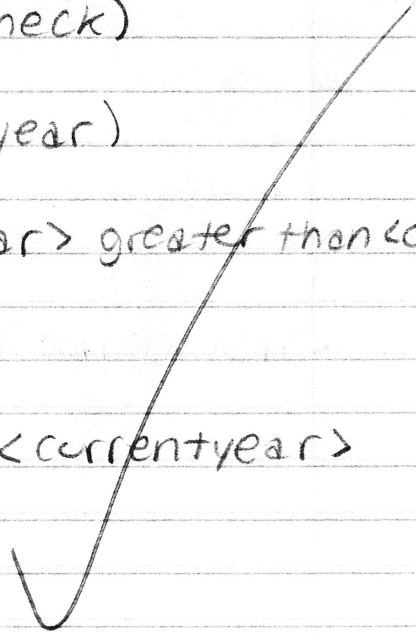 heck)
year)
ar> greater than <c
<currentyear>